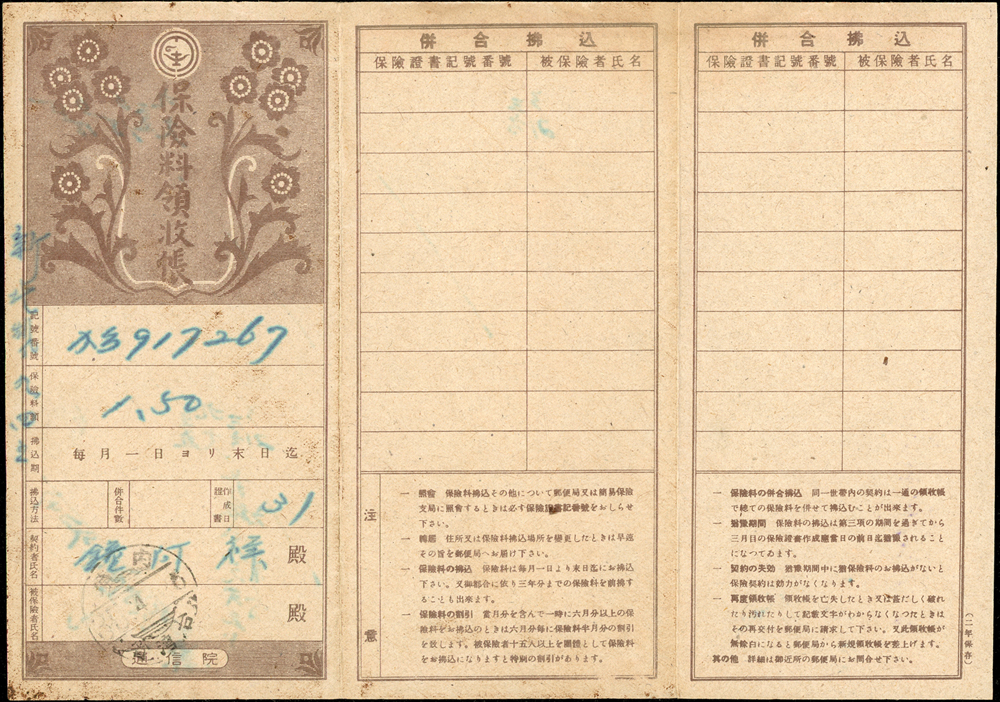 保險料領收帳
記號番號
917267
保險料額
1,50
拂込期
毎月一日ヨリ末日迄
拂込方法
併合件數
證書
作成日
31
契約者氏名
殿
被保險者氏名
殿
遞信院
併合拂込
保險證書記號番號
被保險者氏名
注意
一 照會 保險料拂込その他について郵便局又は簡易保險
支局に照會するときは必ず保險證書記番號をおしらせ
下さい。
一 轉居 住所又は保險料拂込場所を變更したときは早速
その旨を郵便局へお届け下さい。
一 保險料の拂込 保險料は毎月一日より末日迄にお拂込
下さい。又御都合に依り三年分までの保險料を前拂す
ることも出來ます。
一 保險料の割引 當月分を含んで一時に六月分以上の保
險料をお拂込のときは六月分毎に保險料年月分の割引
を致します。被保險者十五人以上を團體として保險料
をお拂込になりますと特別の割引があります。
併合拂込
保險證書記號番號
被保險者氏名
一 保險料の併合拂込 同一世帶内の契約は一通の領收帳
で總ての保險料を併せて拂込むことが出來ます。
一 猶豫期間 保險料の拂込は第三項の期間を過ぎてから
三月目の保險證書作成應當日の前日迄猶豫されること
になつてゐます。
一 契約の失効 猶豫期間中に猶保險料のお拂込がないと
保險契約は効力がなくなります。
一 再度領收帳 領收帳を亡失したとき又は甚だしく破れ
たり汚れたりして記載文字がわからなくなつたときは
その再交付を郵便局に請求して下さい。又此領收帳が
無餘白になると郵便局から新規領收帳を差上げます。
其の他 詳細は御近所の郵便局にお問合せ下さい。
(二年保存)